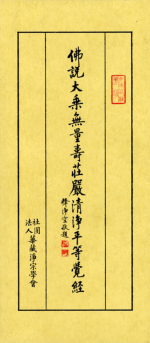 佛說大乘無量壽莊嚴清淨平等覺經
釋淨空敬題
社團
法人
華藏淨宗學會